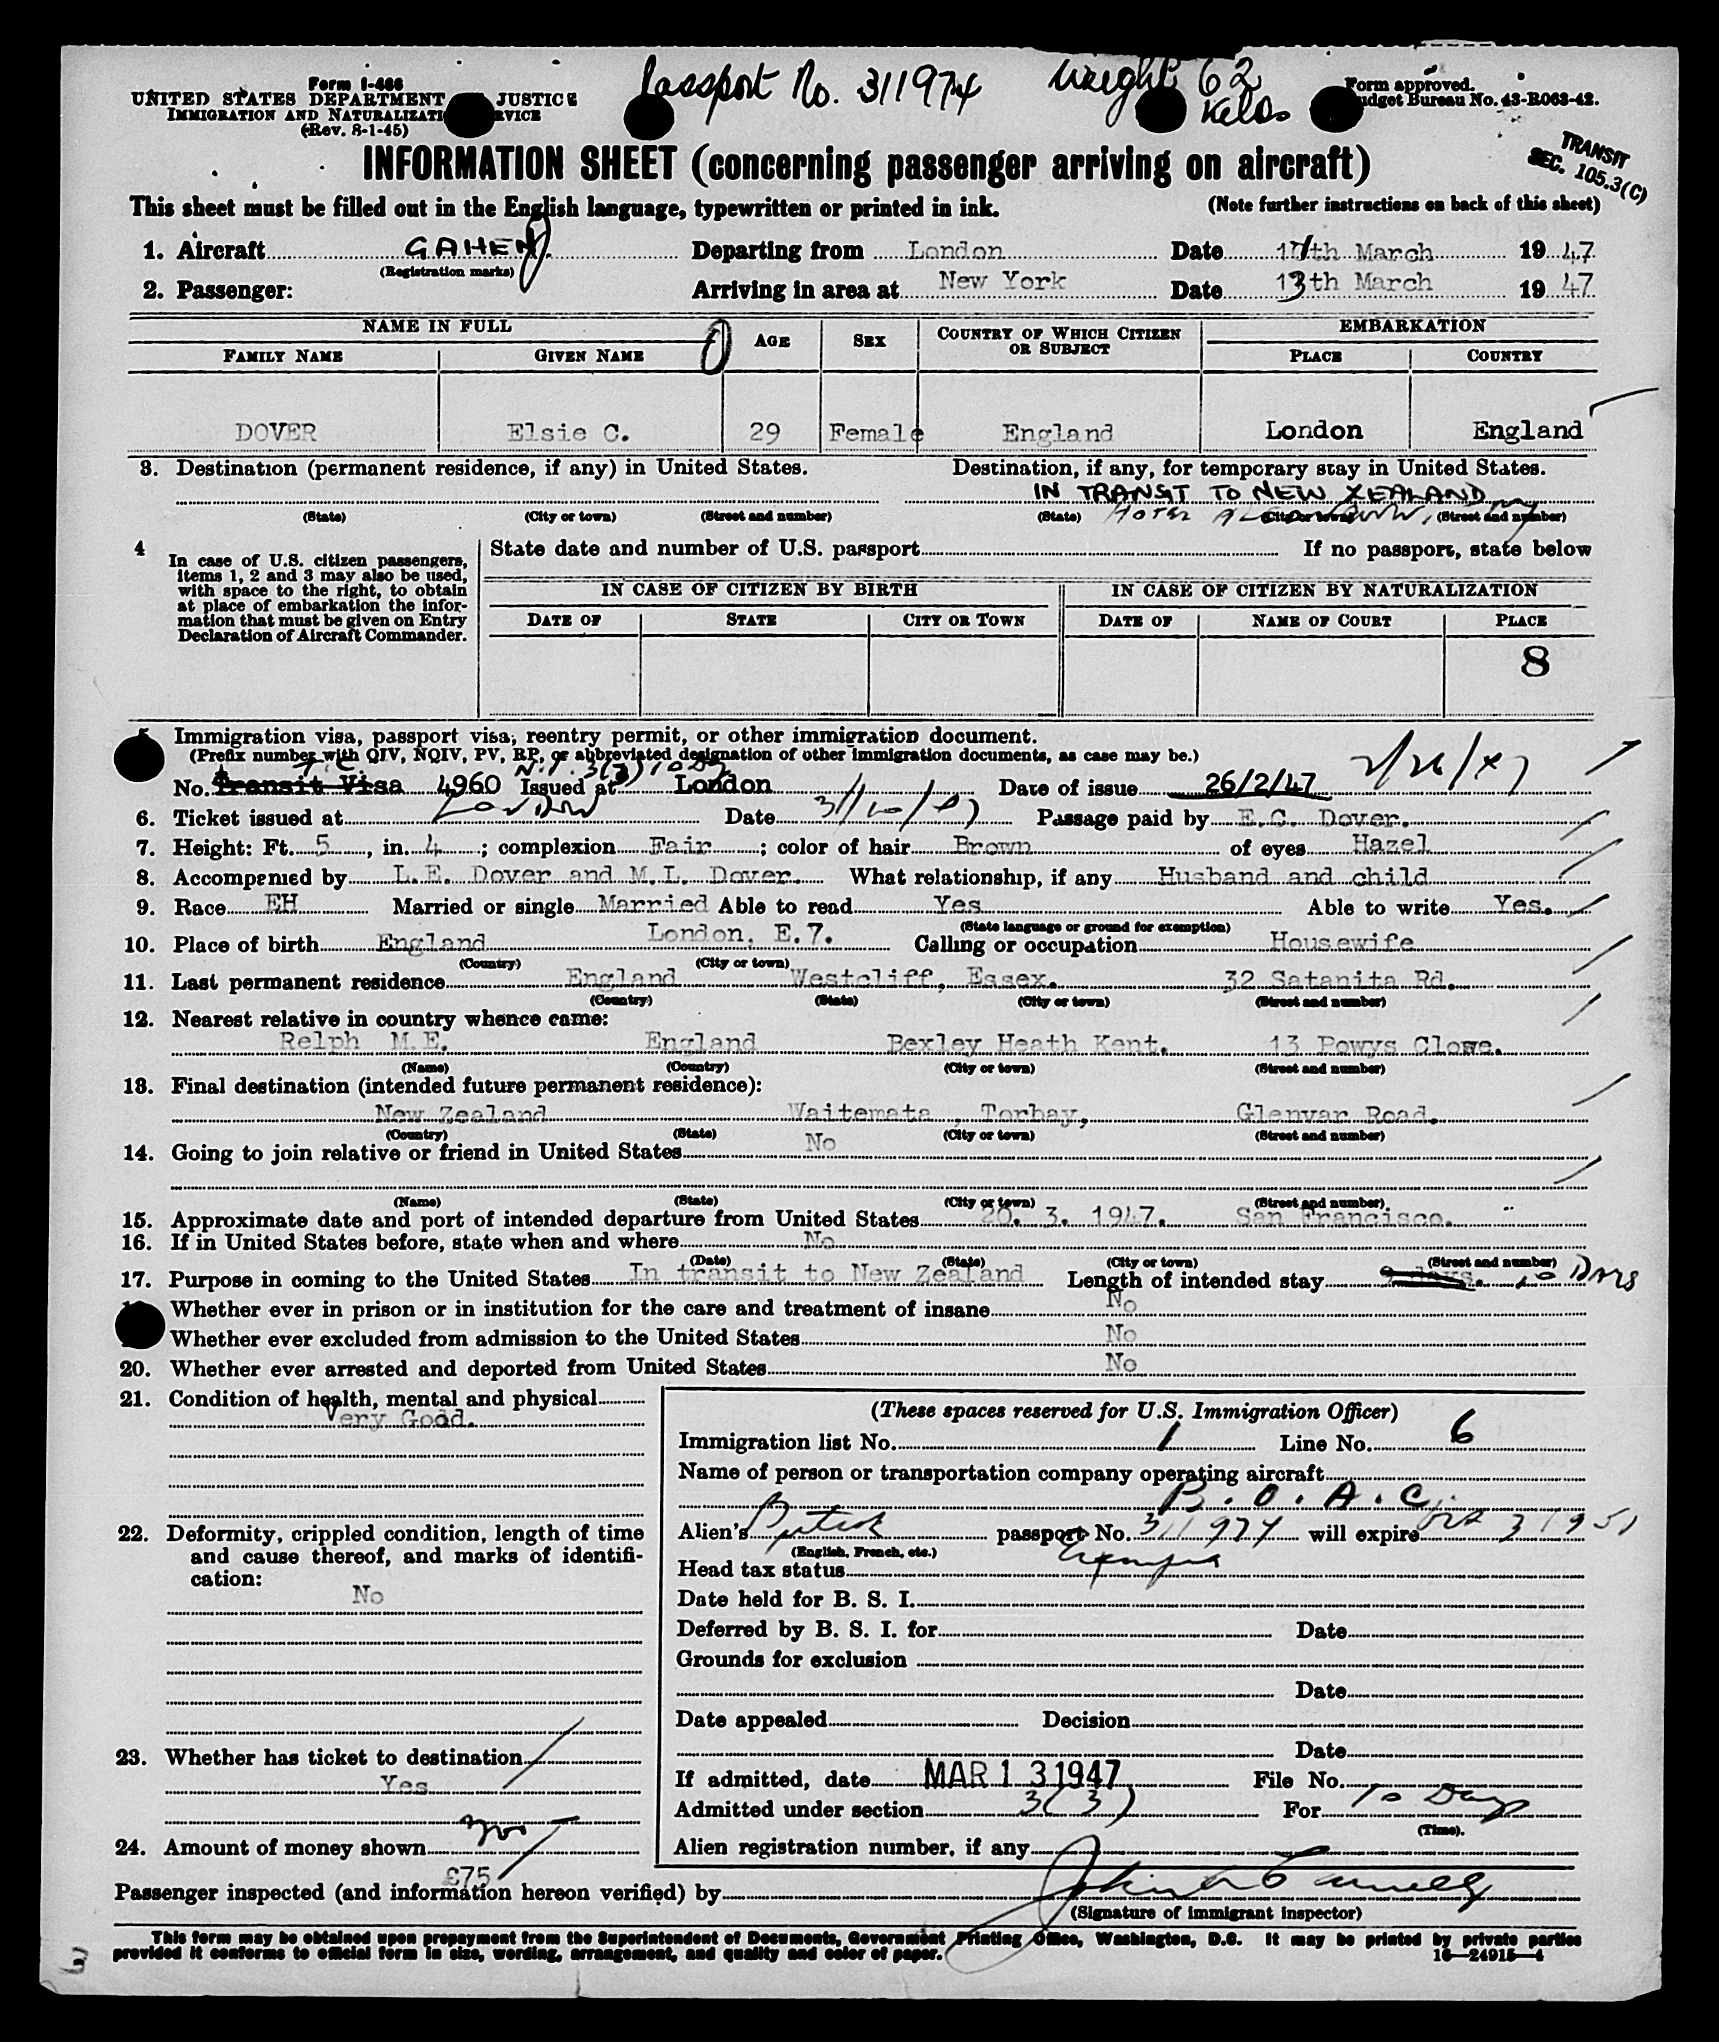 Passport No. 311974 Weight 62 Kelos
Form I-466
UNITED STATES DEPARTMENT JUSTICE
IMMIGRATION AND NATURALIZATI RVICE
(Rev. 8-1-45)
Form approved.
udget Bureau No. 43-R063-42.
TRANSIT
SEC. 105.3(C)
INFORMATION SHEET (concerning passenger arriving on aircraft)
This sheet must be filled out in the English language, typewritten or printed in ink. (Note further instructions on back of this sheet)
1. Aircraft GAHEN Departing from London Date 11th March 19 47
(Registration marks)
2. Passenger: Arriving in area at New York Date 13th March 19 47
NAME IN FULL AGE SEX COUNTRY OF WHICH CITIZEN OR SUBJECT EMBARKATION
FAMILY NAME GIVEN NAME PLACE COUNTRY
DOVER Elsie C. 29 Female England London England
3. Destination (permanent residence, if any) in United States. Destination, if any, for temporary stay in United States.
IN TRANSIT TO NEW ZEALAND
(State) (City or town) (Street and number) (State) (City or town) (Street and number)
4 In case of U.S. citizen passengers, items 1, 2 and 3 may also be used, with space to the right, to obtain at place of embarkation the information that must be given on Entry Declaration of Aircraft Commander.
State date and number of U.S. passport If no passport, state below
IN CASE OF CITIZEN BY BIRTH IN CASE OF CITIZEN BY NATURALIZATION
DATE OF STATE CITY OR TOWN DATE OF NAME OF COURT PLACE
8
5 Immigration visa, passport visa, reentry permit, or other immigration document.
(Prefix number with QIV, NQIV, PV, RP, or abbreviated designation of other immigration documents, as case may be.)
No. Transit Visa 4960 Issued at London Date of issue 26/2/47 2/26/47
6. Ticket issued at London Date 31/10/47 Passage paid by E.C. Dover.
7. Height: Ft. 5, in. 4; complexion Fair; color of hair Brown of eyes Hazel
8. Accompanied by L.E. Dover and M.L. Dover. What relationship, if any Husband and child
9. Race EH Married or single Married Able to read Yes Able to write Yes.
(State language or ground for exemption)
10. Place of birth England London, E.7. Calling or occupation Housewife
(Country) (City or town)
11. Last permanent residence England Westcliff, Essex. 32 Satanita Rd.
(Country) (State) (City or town) (Street and number)
12. Nearest relative in country whence came:
Relph M.E. England Bexley Heath Kent. 13 Powys Close.
(Name) (Country) (City or town) (Street and number)
13. Final destination (intended future permanent residence):
New Zealand Waitemata, Torbay, Glenvar Road.
(Country) (State) (City or town) (Street and number)
14. Going to join relative or friend in United States No
(Name) (State) (City or town) (Street and number)
15. Approximate date and port of intended departure from United States 20. 3. 1947. San Francisco.
16. If in United States before, state when and where No
(Date) (State) (City or town) (Street and number)
17. Purpose in coming to the United States In transit to New Zealand Length of intended stay 9 days. 10 DAYS
Whether ever in prison or in institution for the care and treatment of insane No
Whether ever excluded from admission to the United States No
20. Whether ever arrested and deported from United States No
21. Condition of health, mental and physical
Very Good.
22. Deformity, crippled condition, length of time
and cause thereof, and marks of identifi-
cation:
No
23. Whether has ticket to destination
Yes
24. Amount of money shown
£75
(These spaces reserved for U.S. Immigration Officer)
Immigration list No. 1 Line No. 6
Name of person or transportation company operating aircraft
B.O.A.C.
Alien's British passport No. 311974 will expire Oct 3 1951
(English, French, etc.)
Head tax status Exempt
Date held for B. S. I.
Deferred by B. S. I. for Date
Grounds for exclusion
Date
Date appealed Decision
Date
If admitted, date MAR 13 1947 File No.
Admitted under section 3(3) For 10 Days
(Time).
Alien registration number, if any
Passenger inspected (and information hereon verified) by
(Signature of immigrant inspector)
This form may be obtained upon prepayment from the Superintendent of Documents, Government Printing Office, Washington, D.C. It may be printed by private parties
provided it conforms to official form in size, wording, arrangement, and quality and color of paper. 16—24915-4
3